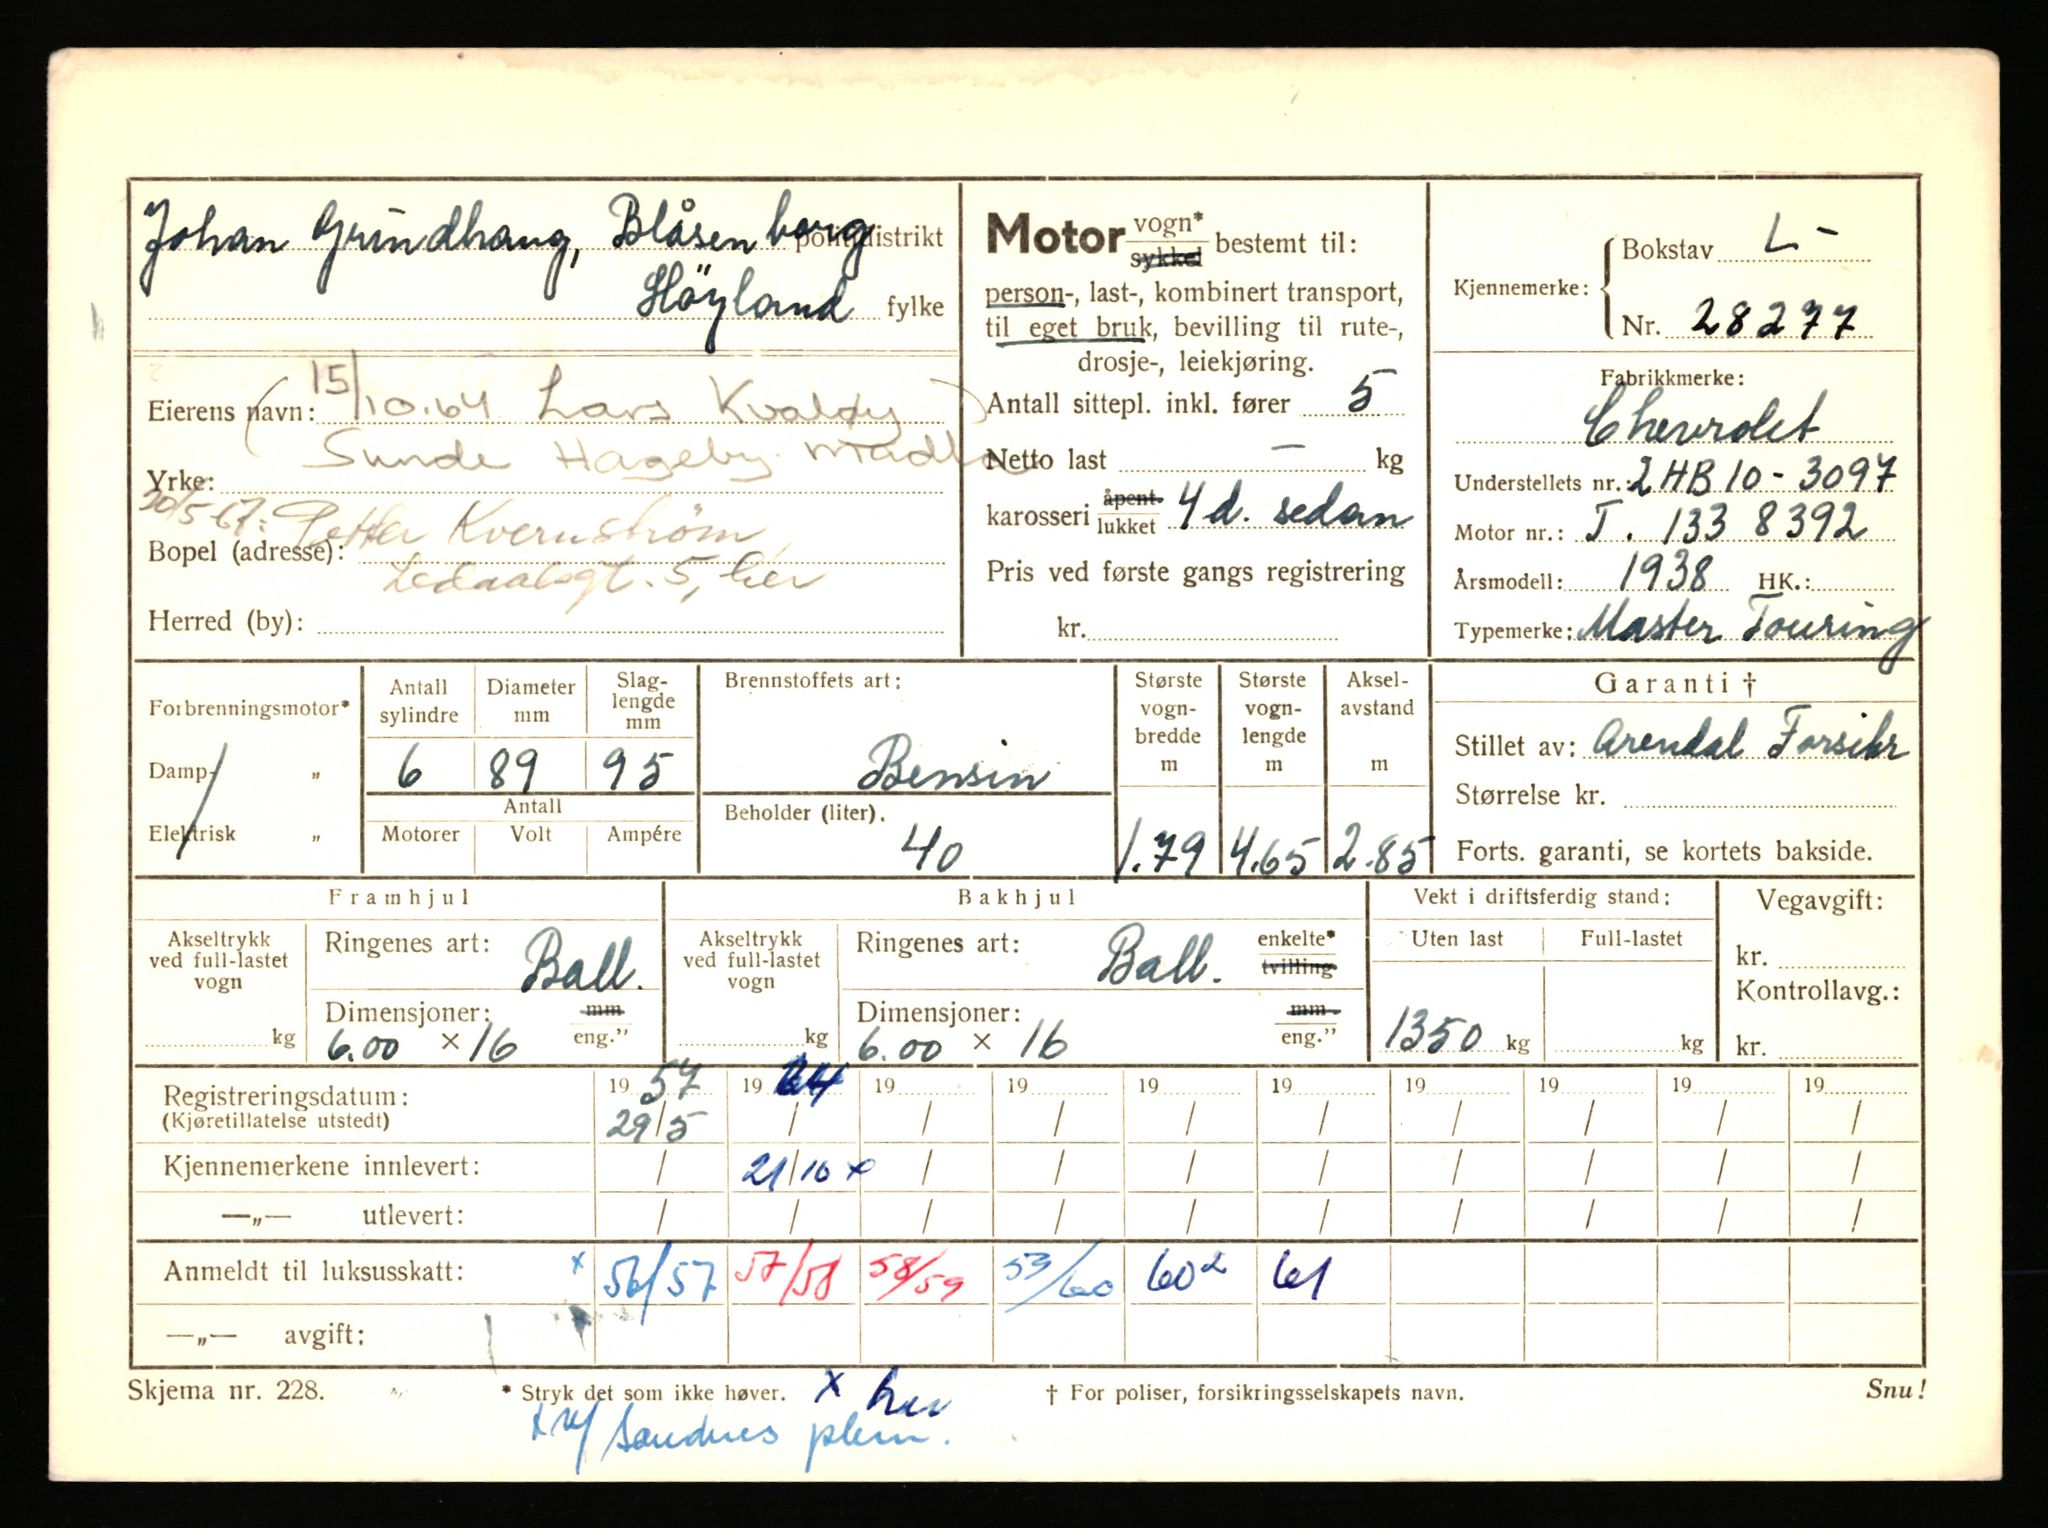 Johan Grindhaug, Blåsenborg politidistrikt
Höyland fylke
Eierens navn: 15/10.64 Lars Kvaløy
Sunde Hageby. Madla
Yrke:
30/5-67: Petter Kvernstrøm
Bopel (adresse):
Ledaalsgt. 5, her
Herred (by):
Motor vogn* sykkel bestemt til:
person-, last-, kombinert transport,
til eget bruk, bevilling til rute-,
drosje-, leiekjøring.
Antall sittepl. inkl. fører 5
Netto last – kg
karosseri åpent lukket 4 d. sedan
Pris ved første gangs registrering
kr.
Kjennemerke: Bokstav L-
Nr. 28277
Fabrikkmerke:
Chevrolet
Understellets nr.: 2HB10-3097
Motor nr.: T. 133 8392
Årsmodell: 1938 HK.:
Typemerke: Master Touring
Forbrenningsmotor*
Damp- „
Elektrisk „
Antall sylindre 6
Diameter mm 89
Slaglengde mm 95
Antall
Motorer Volt Ampére
Brennstoffets art:
Bensin
Beholder (liter).
40
Største vognbredde m 1.79
Største vognlengde m 4.65
Akselavstand m 2.85
Garanti †
Stillet av: Arendal Forsikr
Størrelse kr.
Forts. garanti, se kortets bakside.
Framhjul
Akseltrykk ved full-lastet vogn kg
Ringenes art: Ball.
Dimensjoner: mm
6.00 × 16 eng."
Bakhjul
Akseltrykk ved full-lastet vogn kg
Ringenes art: Ball. enkelte* tvilling
Dimensjoner: mm
6.00 × 16 eng."
Vekt i driftsferdig stand:
Uten last Full-lastet
1350 kg kg
Vegavgift:
kr.
Kontrollavg.:
kr.
Registreringsdatum: 19 57 19 64 19 19 19 19 19 19 19 19
(Kjøretillatelse utstedt) 29/5 / / / / / / / / /
Kjennemerkene innlevert: / 21/10 x / / / / / / / /
—„— utlevert: / / / / / / / / / /
Anmeldt til luksusskatt: x 56/57 57/58 58/59 59/60 60² 61
—„— avgift:
Skjema nr. 228. * Stryk det som ikke høver. x her † For poliser, forsikringsselskapets navn. Snu!
Sandnes